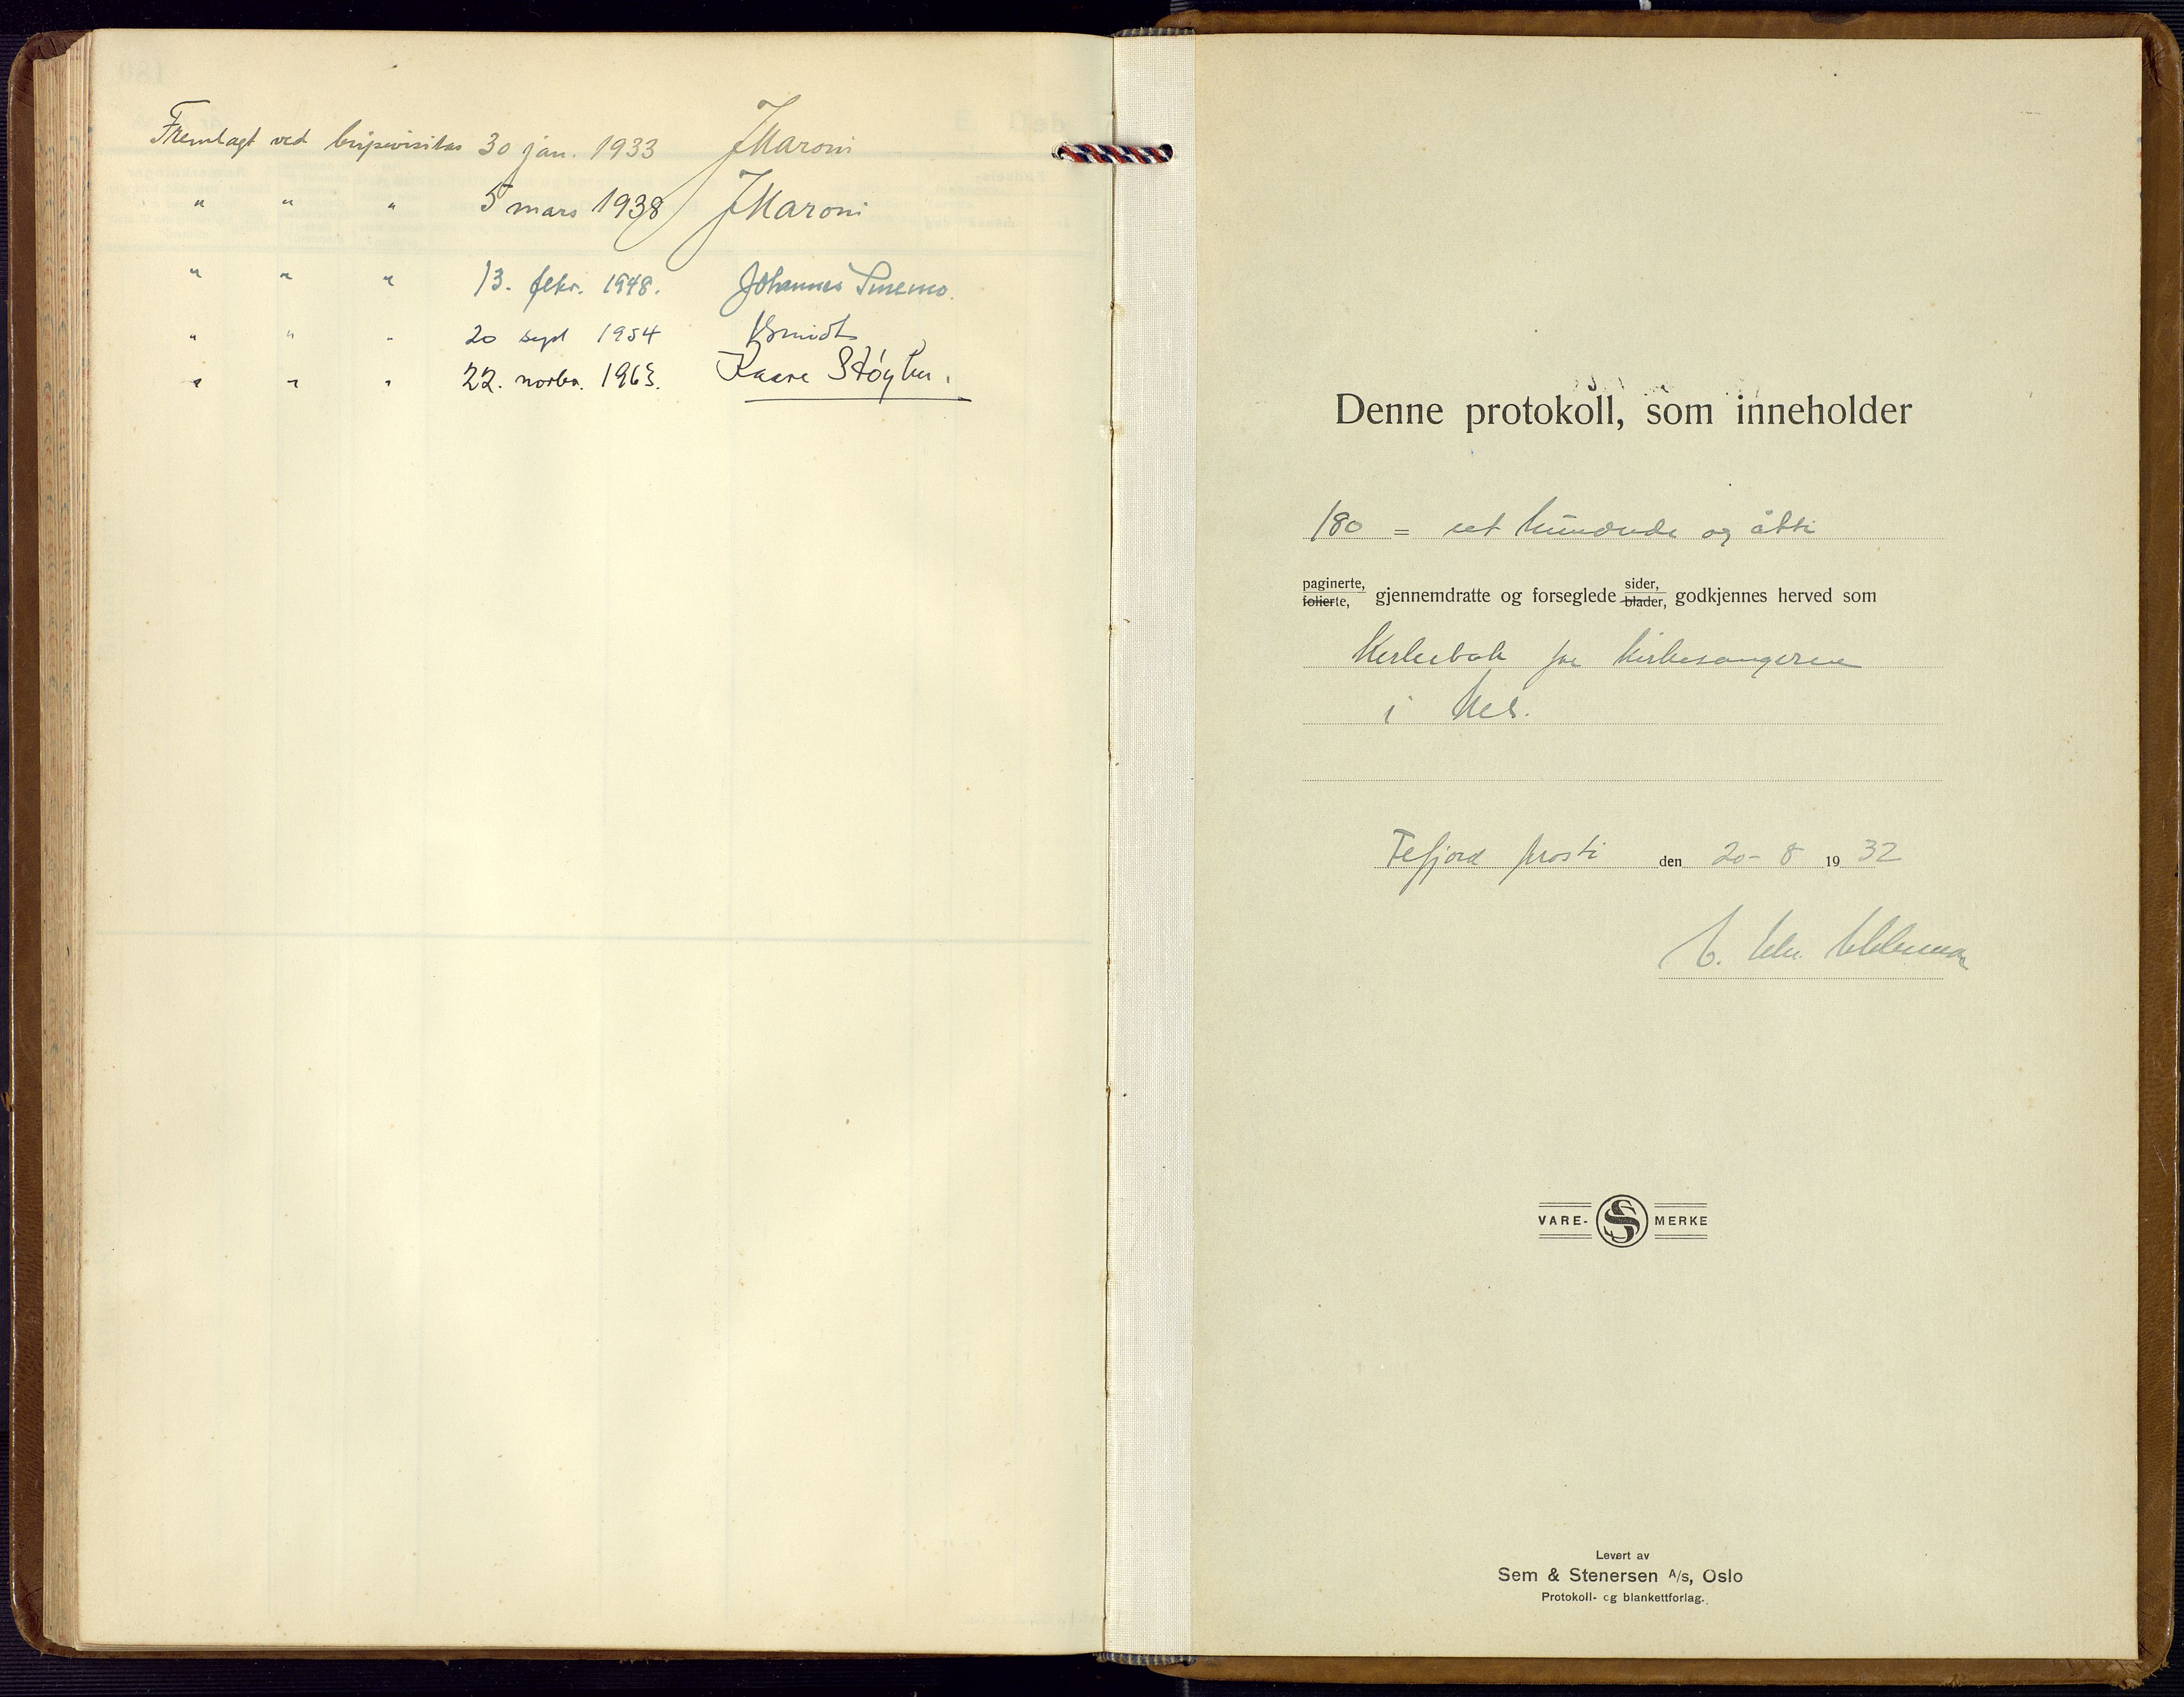 Fremlagt ved bispevisitas 30 jan. 1933 JMaroni
" " " 5 mars 1938 JMaroni
" " " 13. febr. 1948. Johannes Smemo.
" " " 20 sept 1954 Smidt
" " " 22. novbr. 1963. Kaare Støylen.
Denne protokoll, som inneholder
180 = et hundrede og åtti
paginerte, sider,
folierte, gjennemdratte og forseglede blader, godkjennes herved som
Kirkebok for kirkesangeren
i Nes.
prosti den 20-8 1932
VARE- S MERKE
Levert av
Sem & Stenersen A/s, Oslo
Protokoll- og blankettforlag.